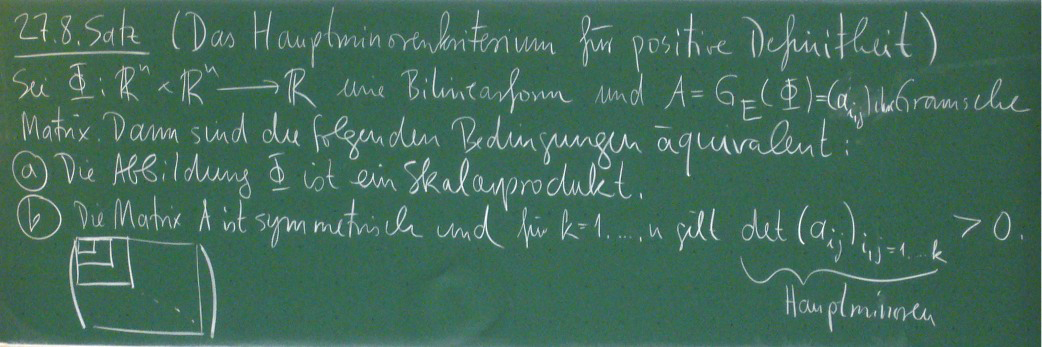 27.8. Satz (Das Hauptminorenkriterium für positive Definitheit)
Sei Φ: ℝⁿ × ℝⁿ → ℝ eine Bilinearform und A = G_E(Φ) = (a_ij) ihre Gramsche
Matrix. Dann sind die folgenden Bedingungen äquivalent:
(a) Die Abbildung Φ ist ein Skalarprodukt.
(b) Die Matrix A ist symmetrisch und für k=1,...,n gilt det (a_ij)_i,j=1...k > 0.
Hauptminoren